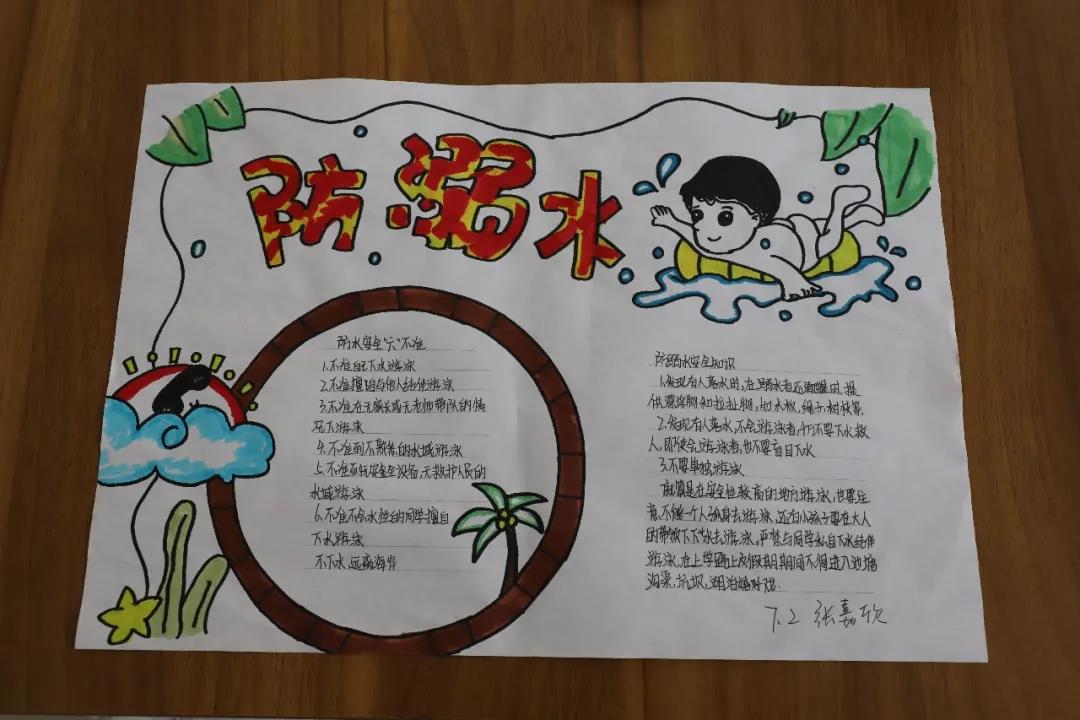 防溺水
防水安全"六"不准
1.不准私自下水游泳
2.不准擅自与他人结伴游泳
3.不准在无家长或无老师带队的情
况下游泳
4.不准到不熟悉的水域游泳
5.不准到无安全设备、无救护人员的
水域游泳
6.不准不会水性的同学擅自
下水游泳
不下水,远离海岸
防溺水安全知识
1.发现有人落水时,在溺水者还清醒时,提
供漂浮物和拉扯物,如木板,绳子,树枝等
2.发现有人落水,不会游泳者,千万不要下水救
人,即使会游泳者,也不要盲目下水
3.不要单独游泳
就算是在安全性较高的地方游泳,也要注
意,不能一个人孤身去游泳,还有小孩子要在大人
的带领下下水去游泳。严禁与同学私自下水结伴
游泳,在上学路上及假期期间不得进入池塘
沟渠,坑坝,湖泊嬉对戏
7.2 张嘉欣